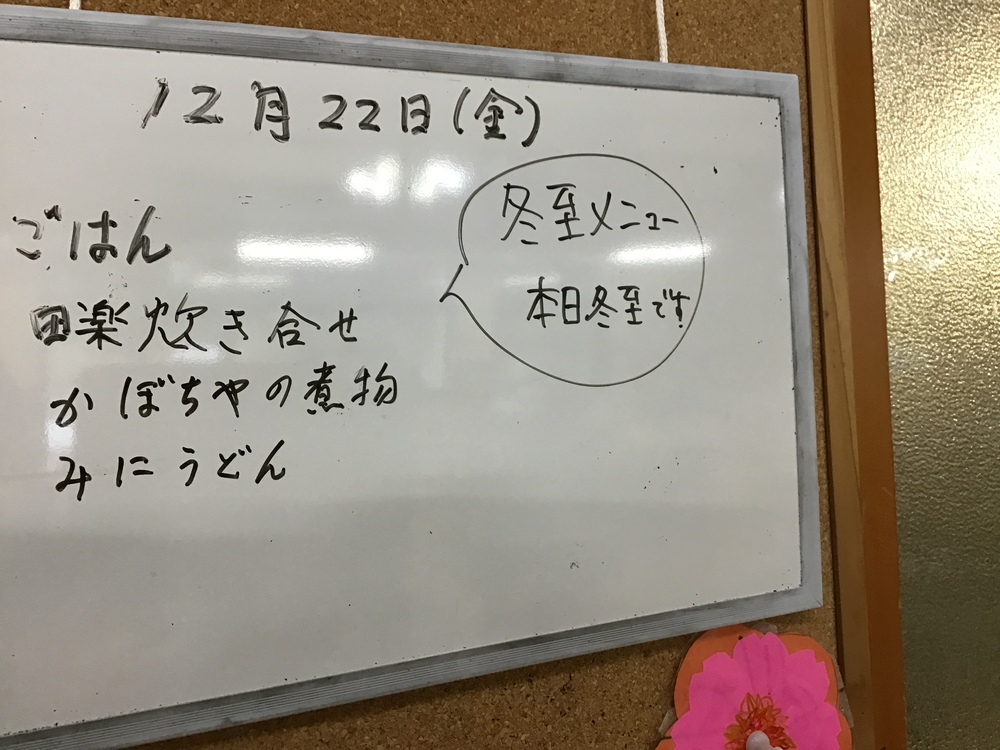 12月22日(金)
ごはん
田楽炊き合せ
かぼちゃの煮物
みにうどん
冬至メニュー
本日冬至です